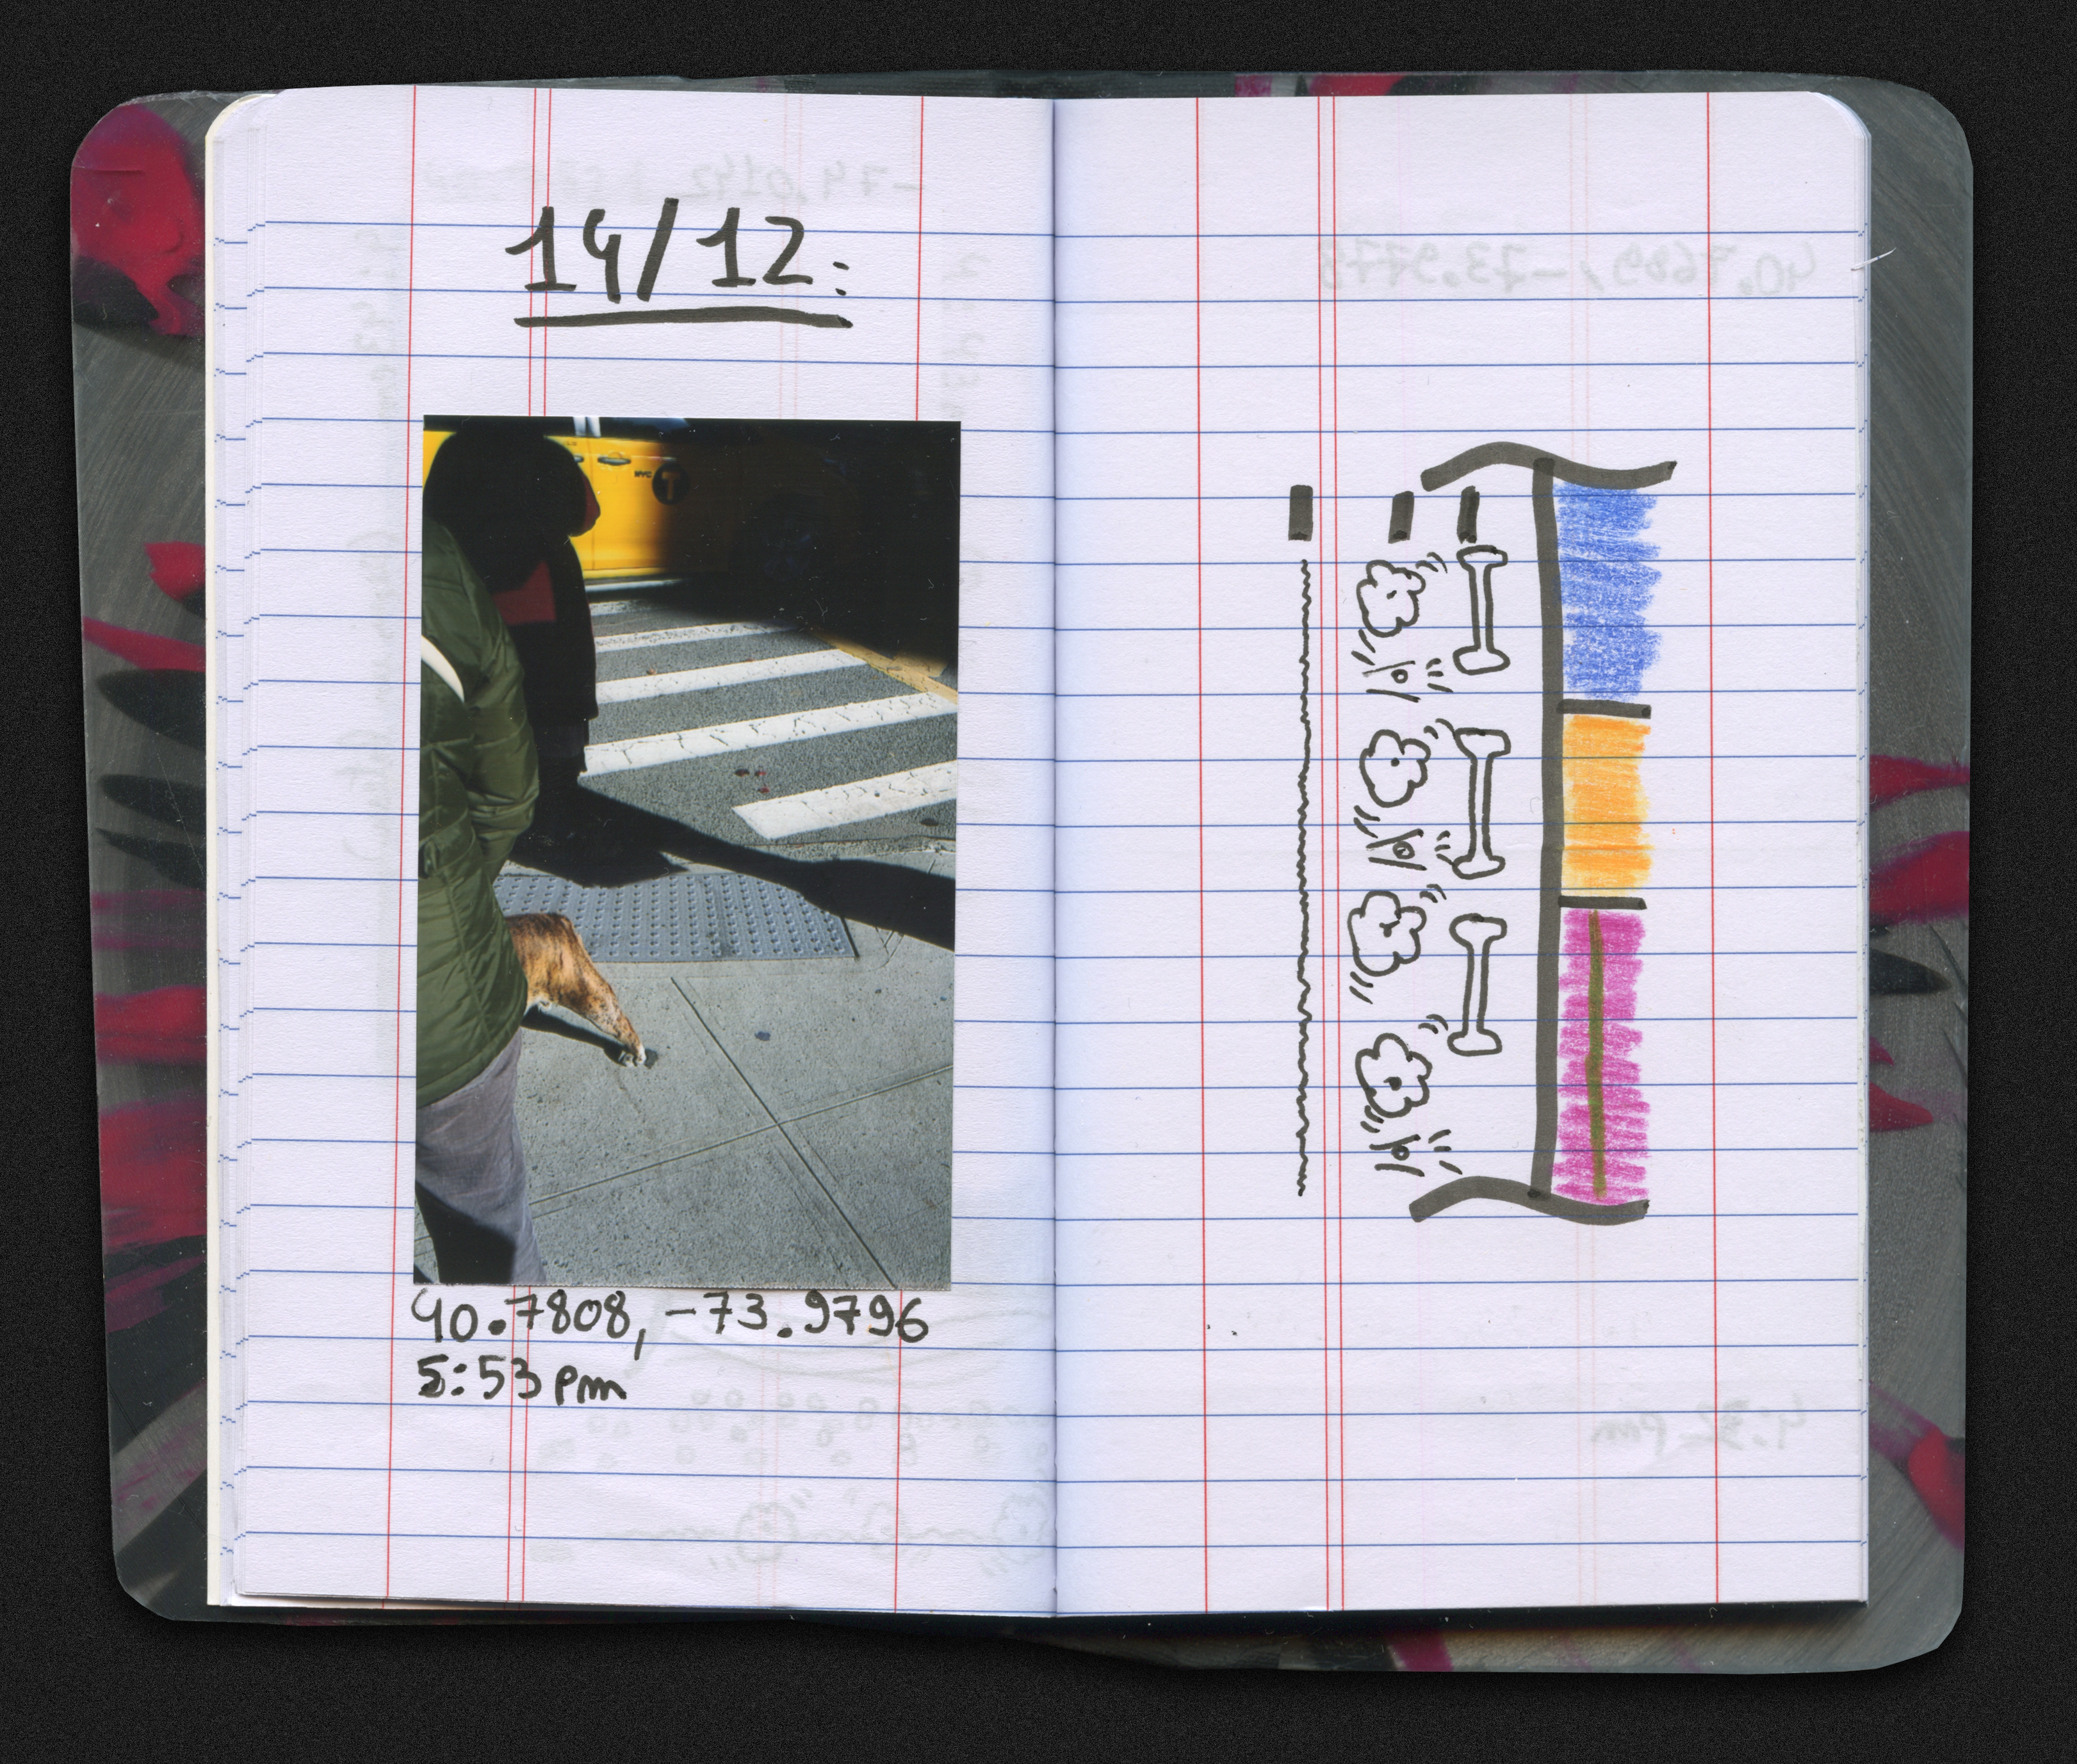 14/12:
NYC T
40.7808, -73.9796
5:53 pm